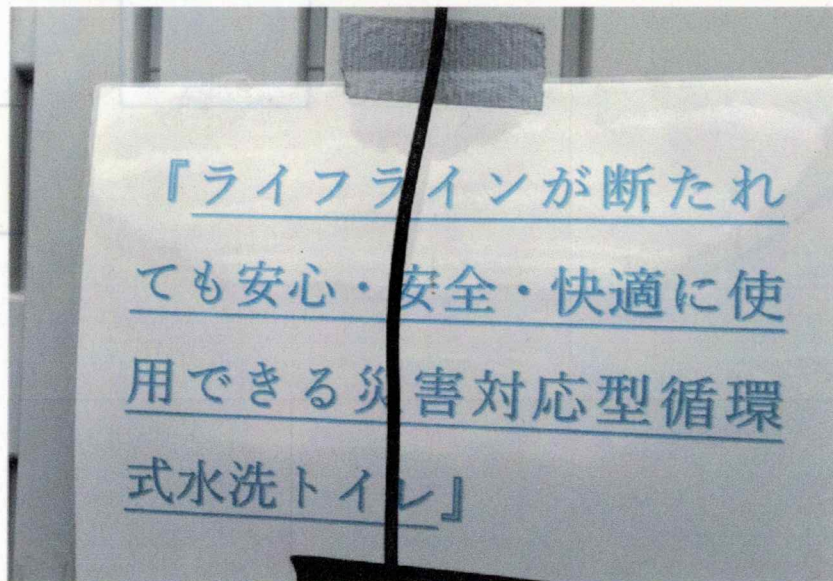 『ライフラインが断たれ
ても安心・安全・快適に使
用できる災害対応型循環
式水洗トイレ』